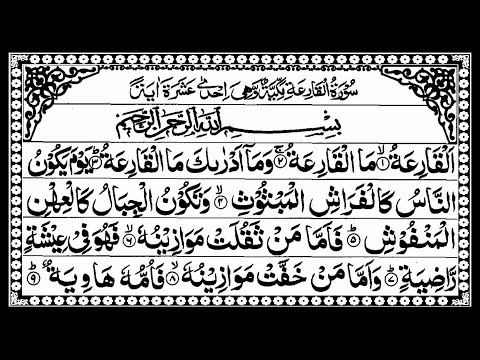 سُوْرَةُ الْقَارِعَةِ مَكِّيَّةٌ وَّهِيَ اِحْدٰى عَشَرَةَ اٰيَةً
بِسْمِ اللّٰهِ الرَّحْمٰنِ الرَّحِيْمِ
اَلْقَارِعَةُ ۙ﴿۱﴾ مَا الْقَارِعَةُ ۚ﴿۲﴾ وَمَاۤ اَدْرٰىكَ مَا الْقَارِعَةُ ؕ﴿۳﴾ يَوْمَ يَكُوْنُ
النَّاسُ كَالْفَرَاشِ الْمَبْثُوْثِ ۙ﴿۴﴾ وَتَكُوْنُ الْجِبَالُ كَالْعِهْنِ
الْمَنْفُوْشِ ؕ﴿۵﴾ فَاَمَّا مَنْ ثَقُلَتْ مَوَازِيْنُهٗ ۙ﴿۶﴾ فَهُوَ فِيْ عِيْشَةٍ
رَّاضِيَةٍ ؕ﴿۷﴾ وَاَمَّا مَنْ خَفَّتْ مَوَازِيْنُهٗ ۙ﴿۸﴾ فَاُمُّهٗ هَاوِيَةٌ ؕ﴿۹﴾